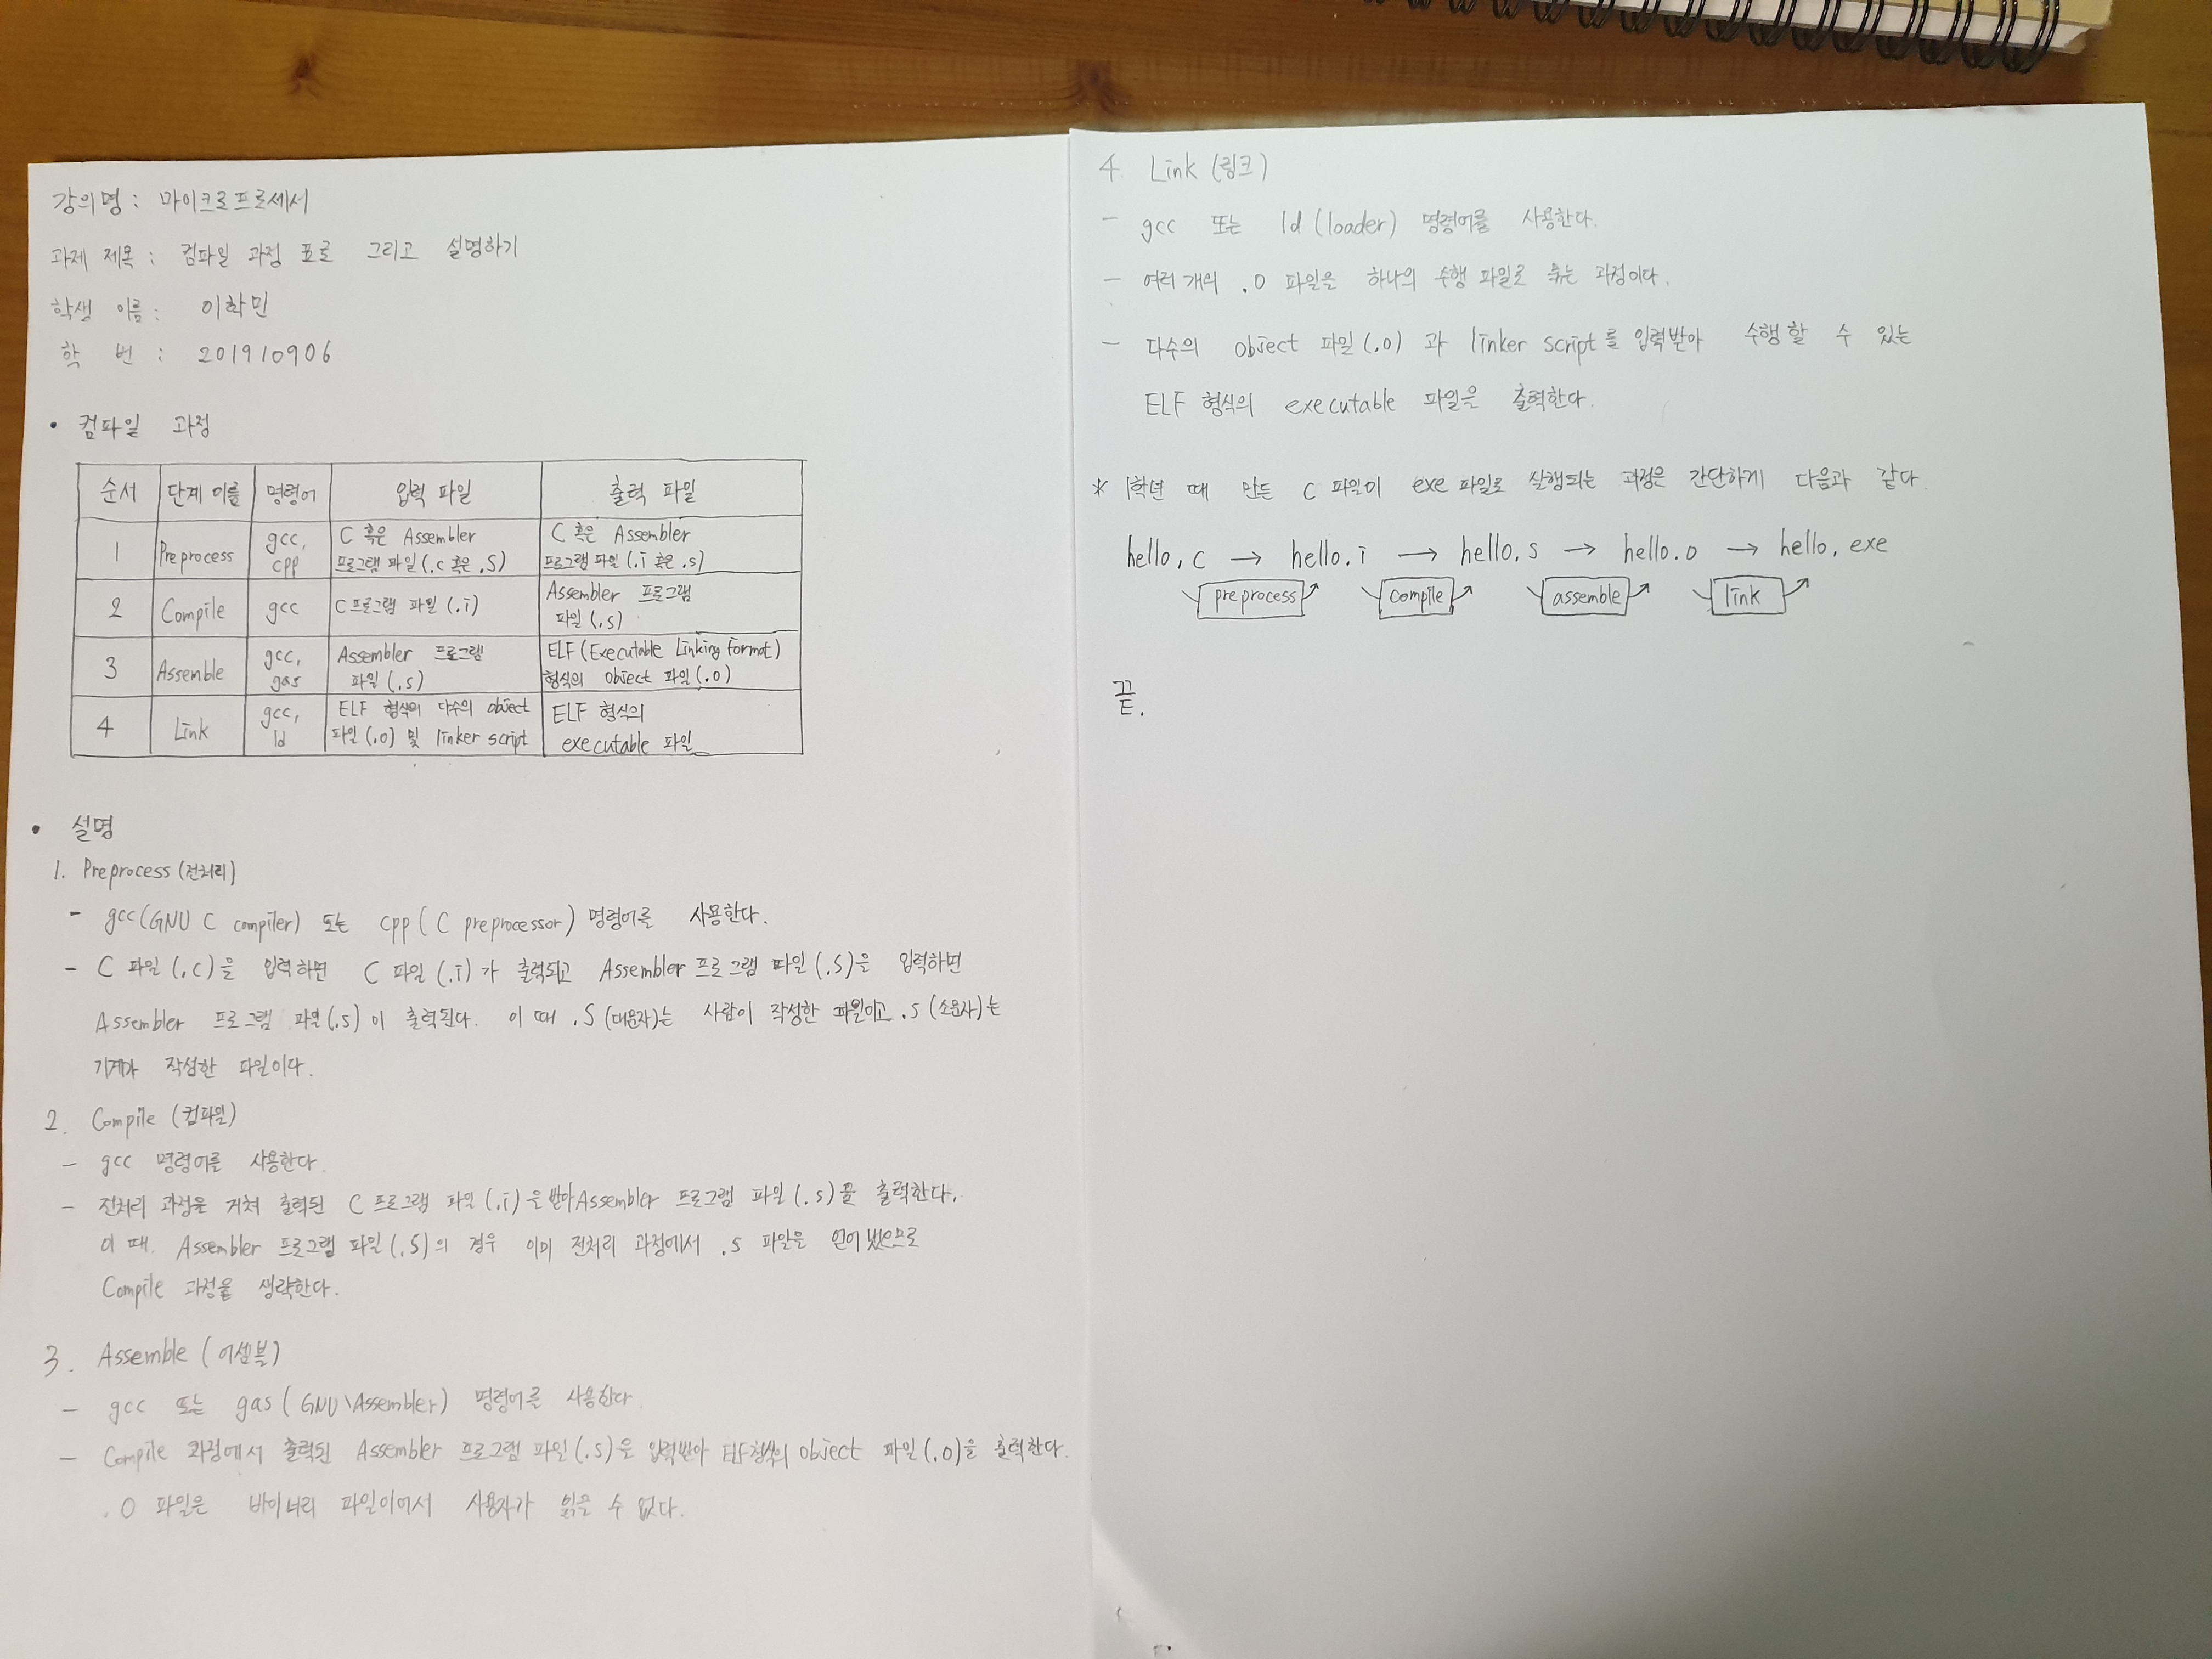 강의명 : 마이크로프로세서
과제 제목 : 컴파일 과정 표로 그리고 설명하기
학생 이름 : 이학민
학 번 : 201910906
• 컴파일 과정
순서 단계 이름 명령어 입력 파일 출력 파일
1 Preprocess gcc, cpp C 혹은 Assembler 프로그램 파일(.c 혹은 .S) C 혹은 Assembler 프로그램 파일(.i 혹은 .s)
2 Compile gcc C프로그램 파일(.i) Assembler 프로그램 파일(.s)
3 Assemble gcc, gas Assembler 프로그램 파일(.s) ELF(Executable Linking Format) 형식의 object 파일(.o)
4 Link gcc, ld ELF 형식의 다수의 object 파일(.o) 및 linker script ELF 형식의 executable 파일
• 설명
1. Preprocess(전처리)
- gcc(GNU C compiler) 또는 cpp( C preprocessor) 명령어를 사용한다.
- C 파일(.c)을 입력하면 C 파일(.i)가 출력되고 Assembler 프로그램 파일(.S)을 입력하면
Assembler 프로그램 파일(.s)이 출력된다. 이 때 .S (대문자)는 사람이 작성한 파일이고 .s (소문자)는
기계가 작성한 파일이다.
2. Compile (컴파일)
- gcc 명령어를 사용한다.
- 전처리 과정을 거쳐 출력된 C 프로그램 파일(.i)을 받아 Assembler 프로그램 파일(.s)를 출력한다.
이 때, Assembler 프로그램 파일(.S)의 경우 이미 전처리 과정에서 .s 파일을 얻어냈으므로
Compile 과정을 생략한다.
3. Assemble (어셈블)
- gcc 또는 gas( GNU Assembler) 명령어를 사용한다.
- Compile 과정에서 출력된 Assembler 프로그램 파일(.s)을 입력받아 ELF형식의 object 파일(.o)을 출력한다.
.o 파일은 바이너리 파일이어서 사용자가 읽을 수 없다.
4. Link (링크)
- gcc 또는 ld (loader) 명령어를 사용한다.
- 여러 개의 .o 파일을 하나의 수행 파일로 묶는 과정이다.
- 다수의 object 파일(.o)과 linker script를 입력받아 수행할 수 있는
ELF 형식의 executable 파일을 출력한다.
* 1학년 때 만든 C 파일이 exe 파일로 실행되는 과정은 간단하게 다음과 같다.
hello.c → hello.i → hello.s → hello.o → hello.exe
preprocess compile assemble link
끝.